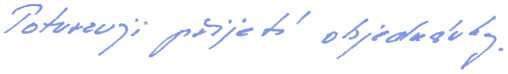 Potvrzuji přijetí objednávky.